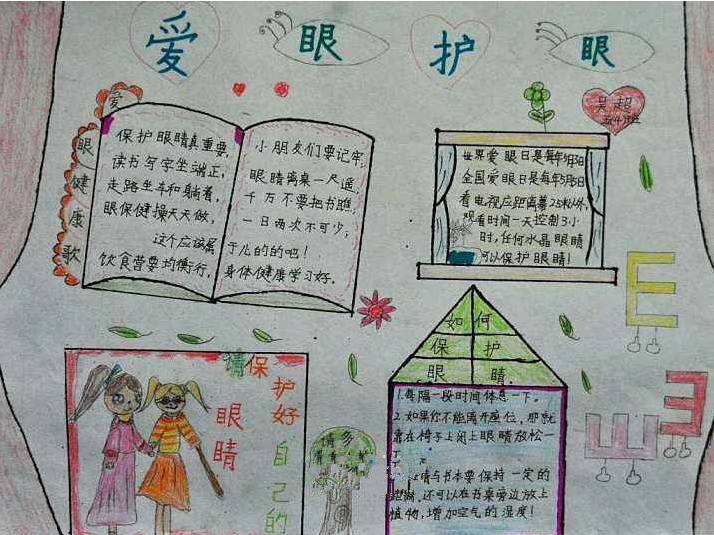 爱 眼 护 眼
爱眼健康歌
保护眼睛真重要,
读书写字坐端正,
走路坐车和躺着,
眼保健操天天做,
这个应该属
饮食营要均衡行,
小朋友们要记牢,
眼睛离桌一尺遥,
千万不要把书瞧,
一日两次不可少,
于儿的的吧!
身体健康学习好。
吴超
世界爱眼日是每年
全国爱眼日是每年
看电视应距离幕2.5米以外,
观看时间一天控制3小
时,任何水晶眼睛
可以保护眼睛!
E
E
E
如何
保护
眼睛
1.每隔一段时间休息一下。
2.如果你不能离开座位,那就
靠在椅子上闭上眼睛放松一
下
睛与书本要保持一定的
距离,还可以在书桌旁边放上
植物,增加空气的湿度!
请保护好自己的
眼睛
请多
看看